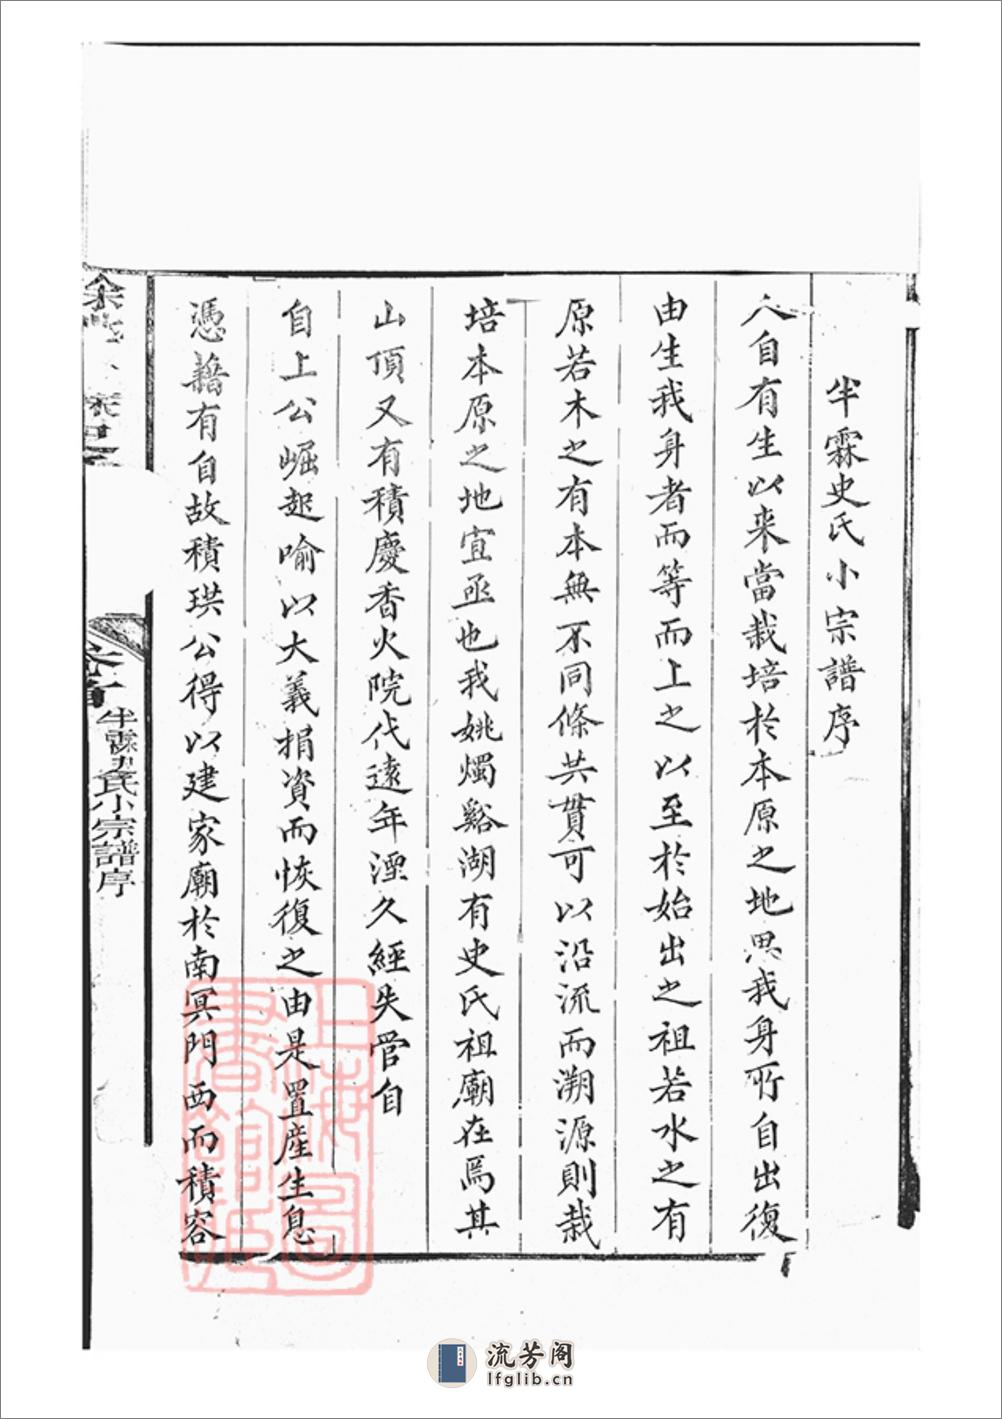 半霖史氏小宗譜序
人自有生以來當栽培於本原之地思我身所自出復
由生我身者而等而上之以至於始出之祖若水之有
原若木之有本無不同條共貫可以沿流而溯源則栽
培本原之地宜亟也我姚燭谿湖有史氏祖廟在焉其
山頂又有積慶香火院代遠年湮久經失管自
自上公崛起喻以大義捐資而恢復之由是置產生息
憑藉有自故積珙公得以建家廟於南冥門西而積容
半霖史氏小宗譜序
上海圖書館藏
流芳阁
lfglib.cn